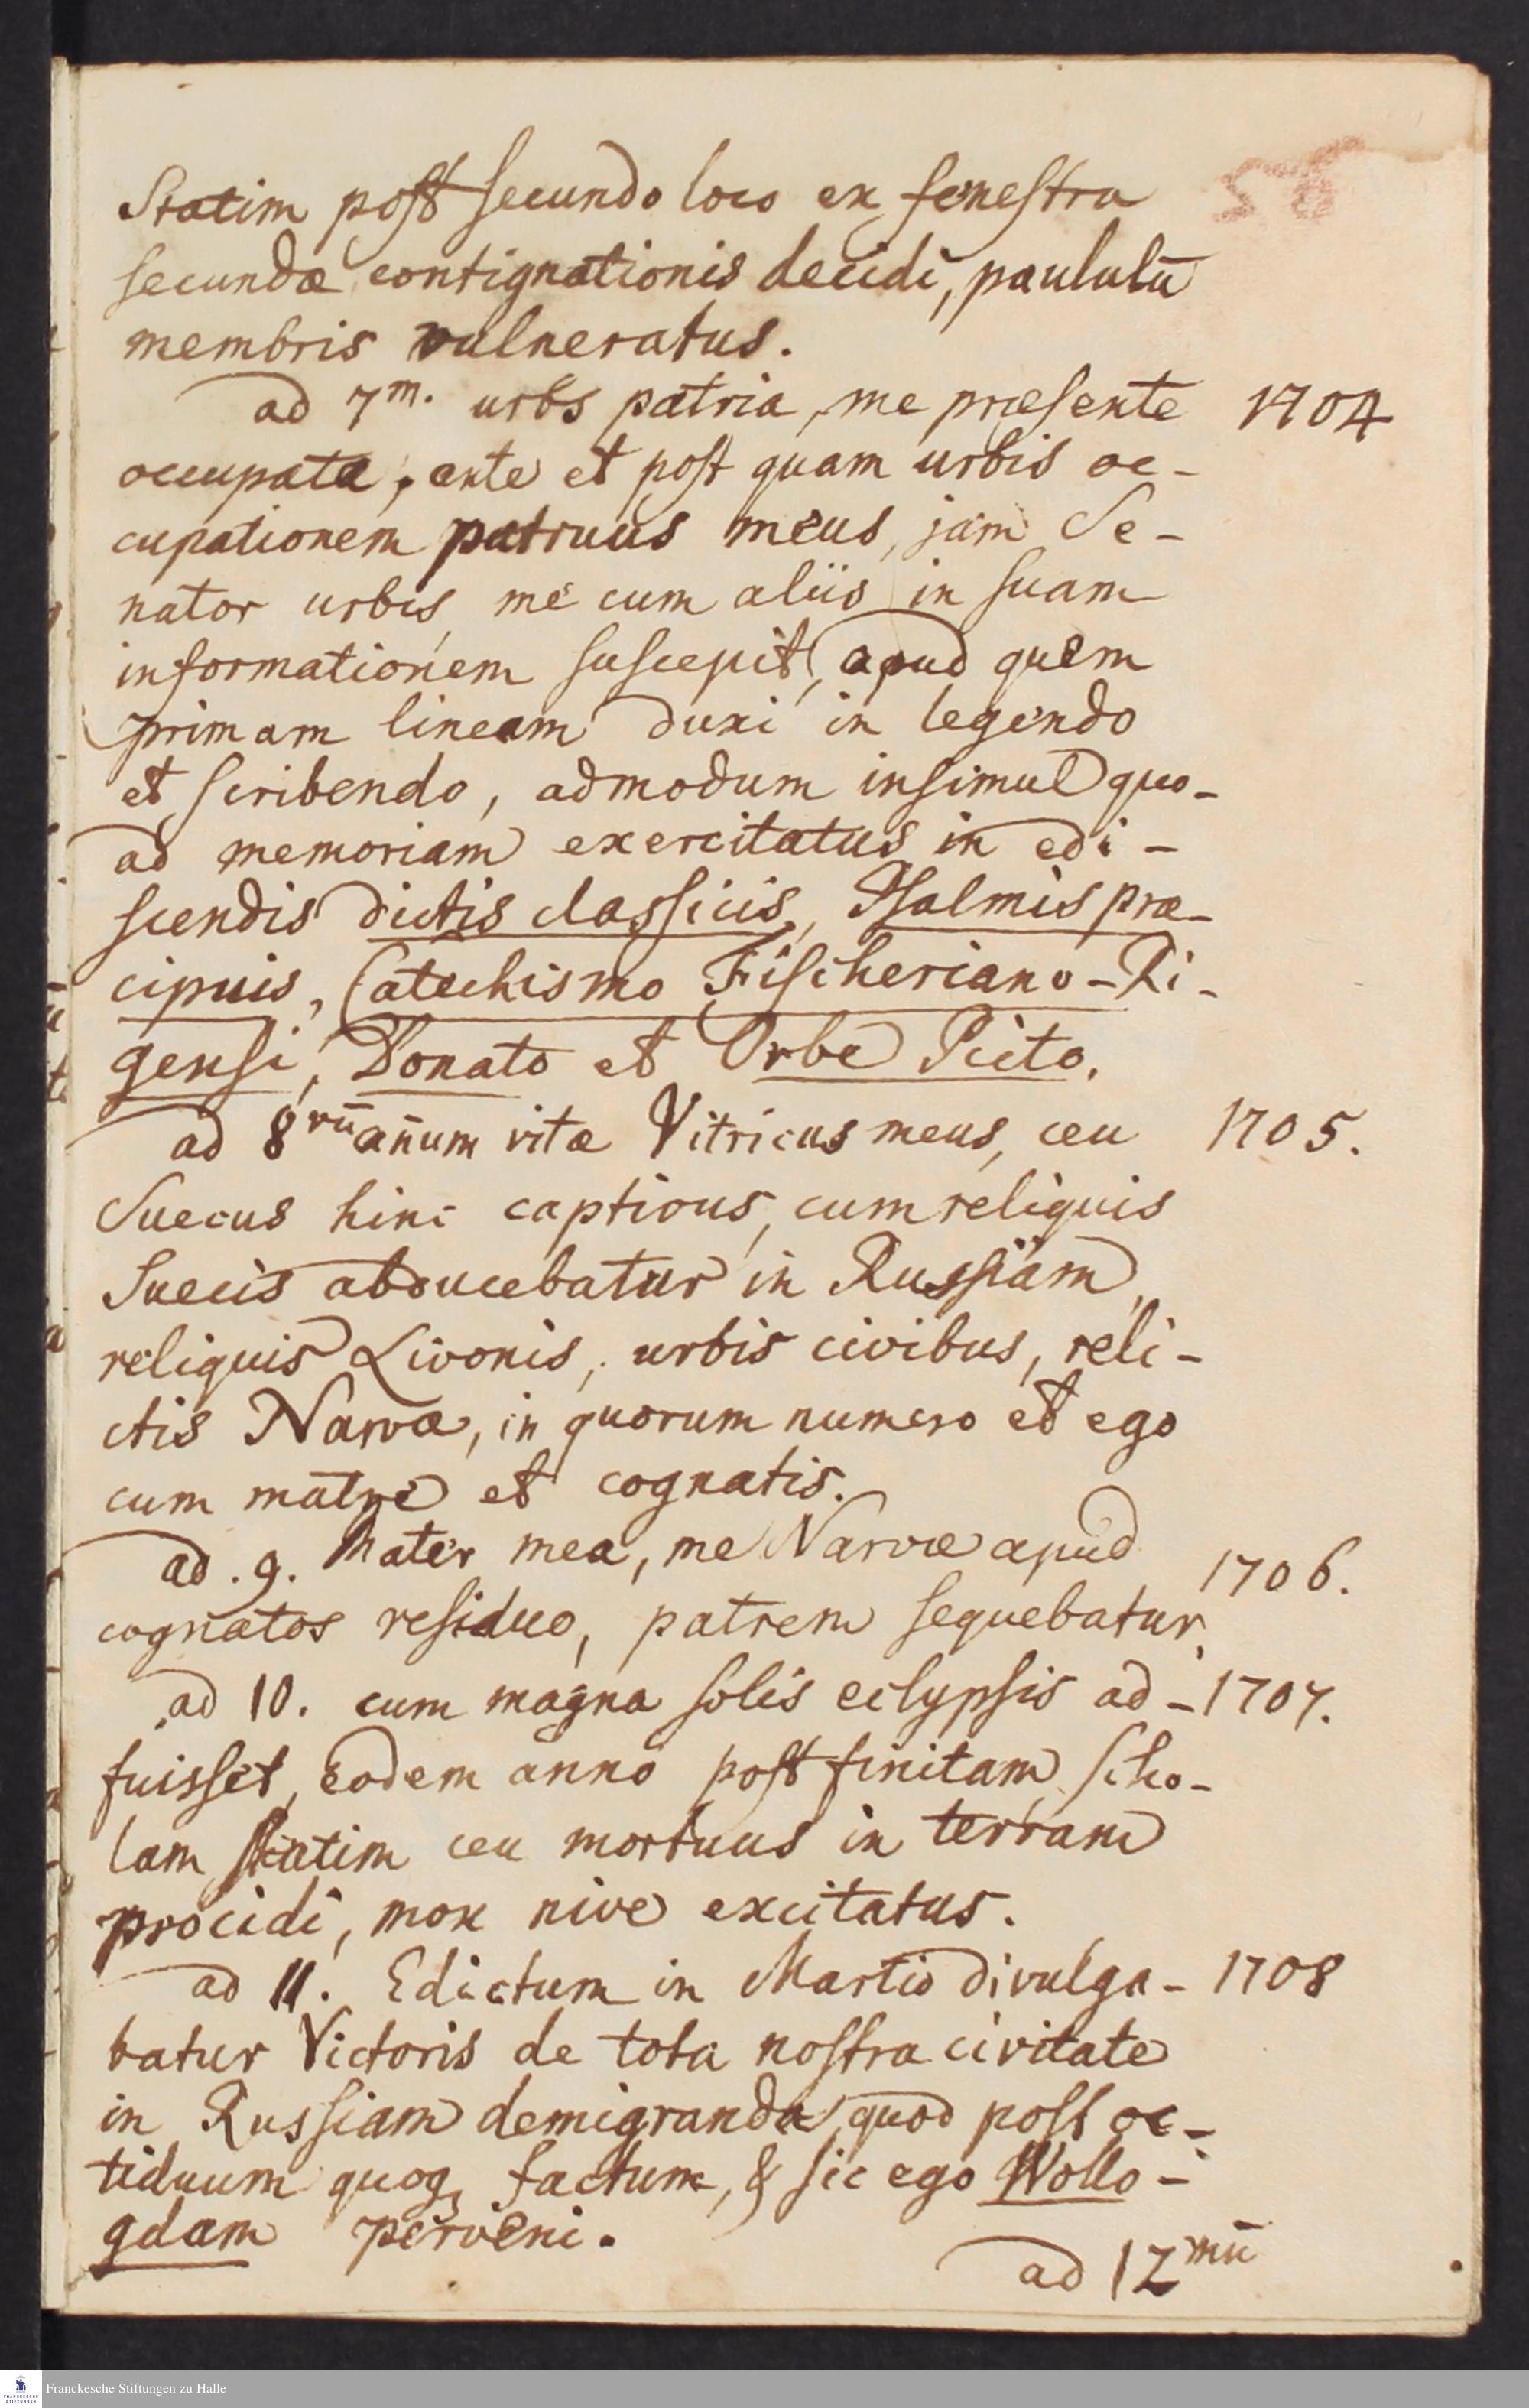 Statim post secundo loco ex fenestra
secundæ contignationis decidi, paululū
membris vulneratus.
ad 7m. urbs patria, me præsente 1704
occupata, ante et post quam urbis oc-
cupationem patruus meus, jam Se-
nator urbis, me cum aliis in suam
informationem suscepit, apud quem
primam lineam duxi in legendo
et scribendo, admodum insimul quo-
ad memoriam exercitatus in edi-
scendis dictis classicis, Psalmis præ-
cipuis, Catechismo Fischeriano-Ri-
gensi, Donato et Orbe Picto.
ad 8vū an̄um vitæ Vitricus meus, ceu 1705.
Suecus hinc captivus, cum reliquis
Suecis abducebatur in Russiam,
reliquis Livonis, urbis civibus, reli-
ctis Narvæ, in quorum numero et ego
cum matre et cognatis.
ad .9. Mater mea, me Narvæ apud 1706.
cognatos residuo, patrem sequebatur.
ad 10. cum magna solis eclypsis ad- 1707.
fuisset, Eodem anno post finitam Scho-
lam statim ceu mortuus in terram
procidi, mox nive excitatus.
ad 11. Edictum in Martio divulga- 1708
batur Victoris de tota nostra civitate
in Russiam demigranda, quod post oc-
tiduum quoq, factum, & sic ego Wollo-
gdam perveni.
ad 12mū